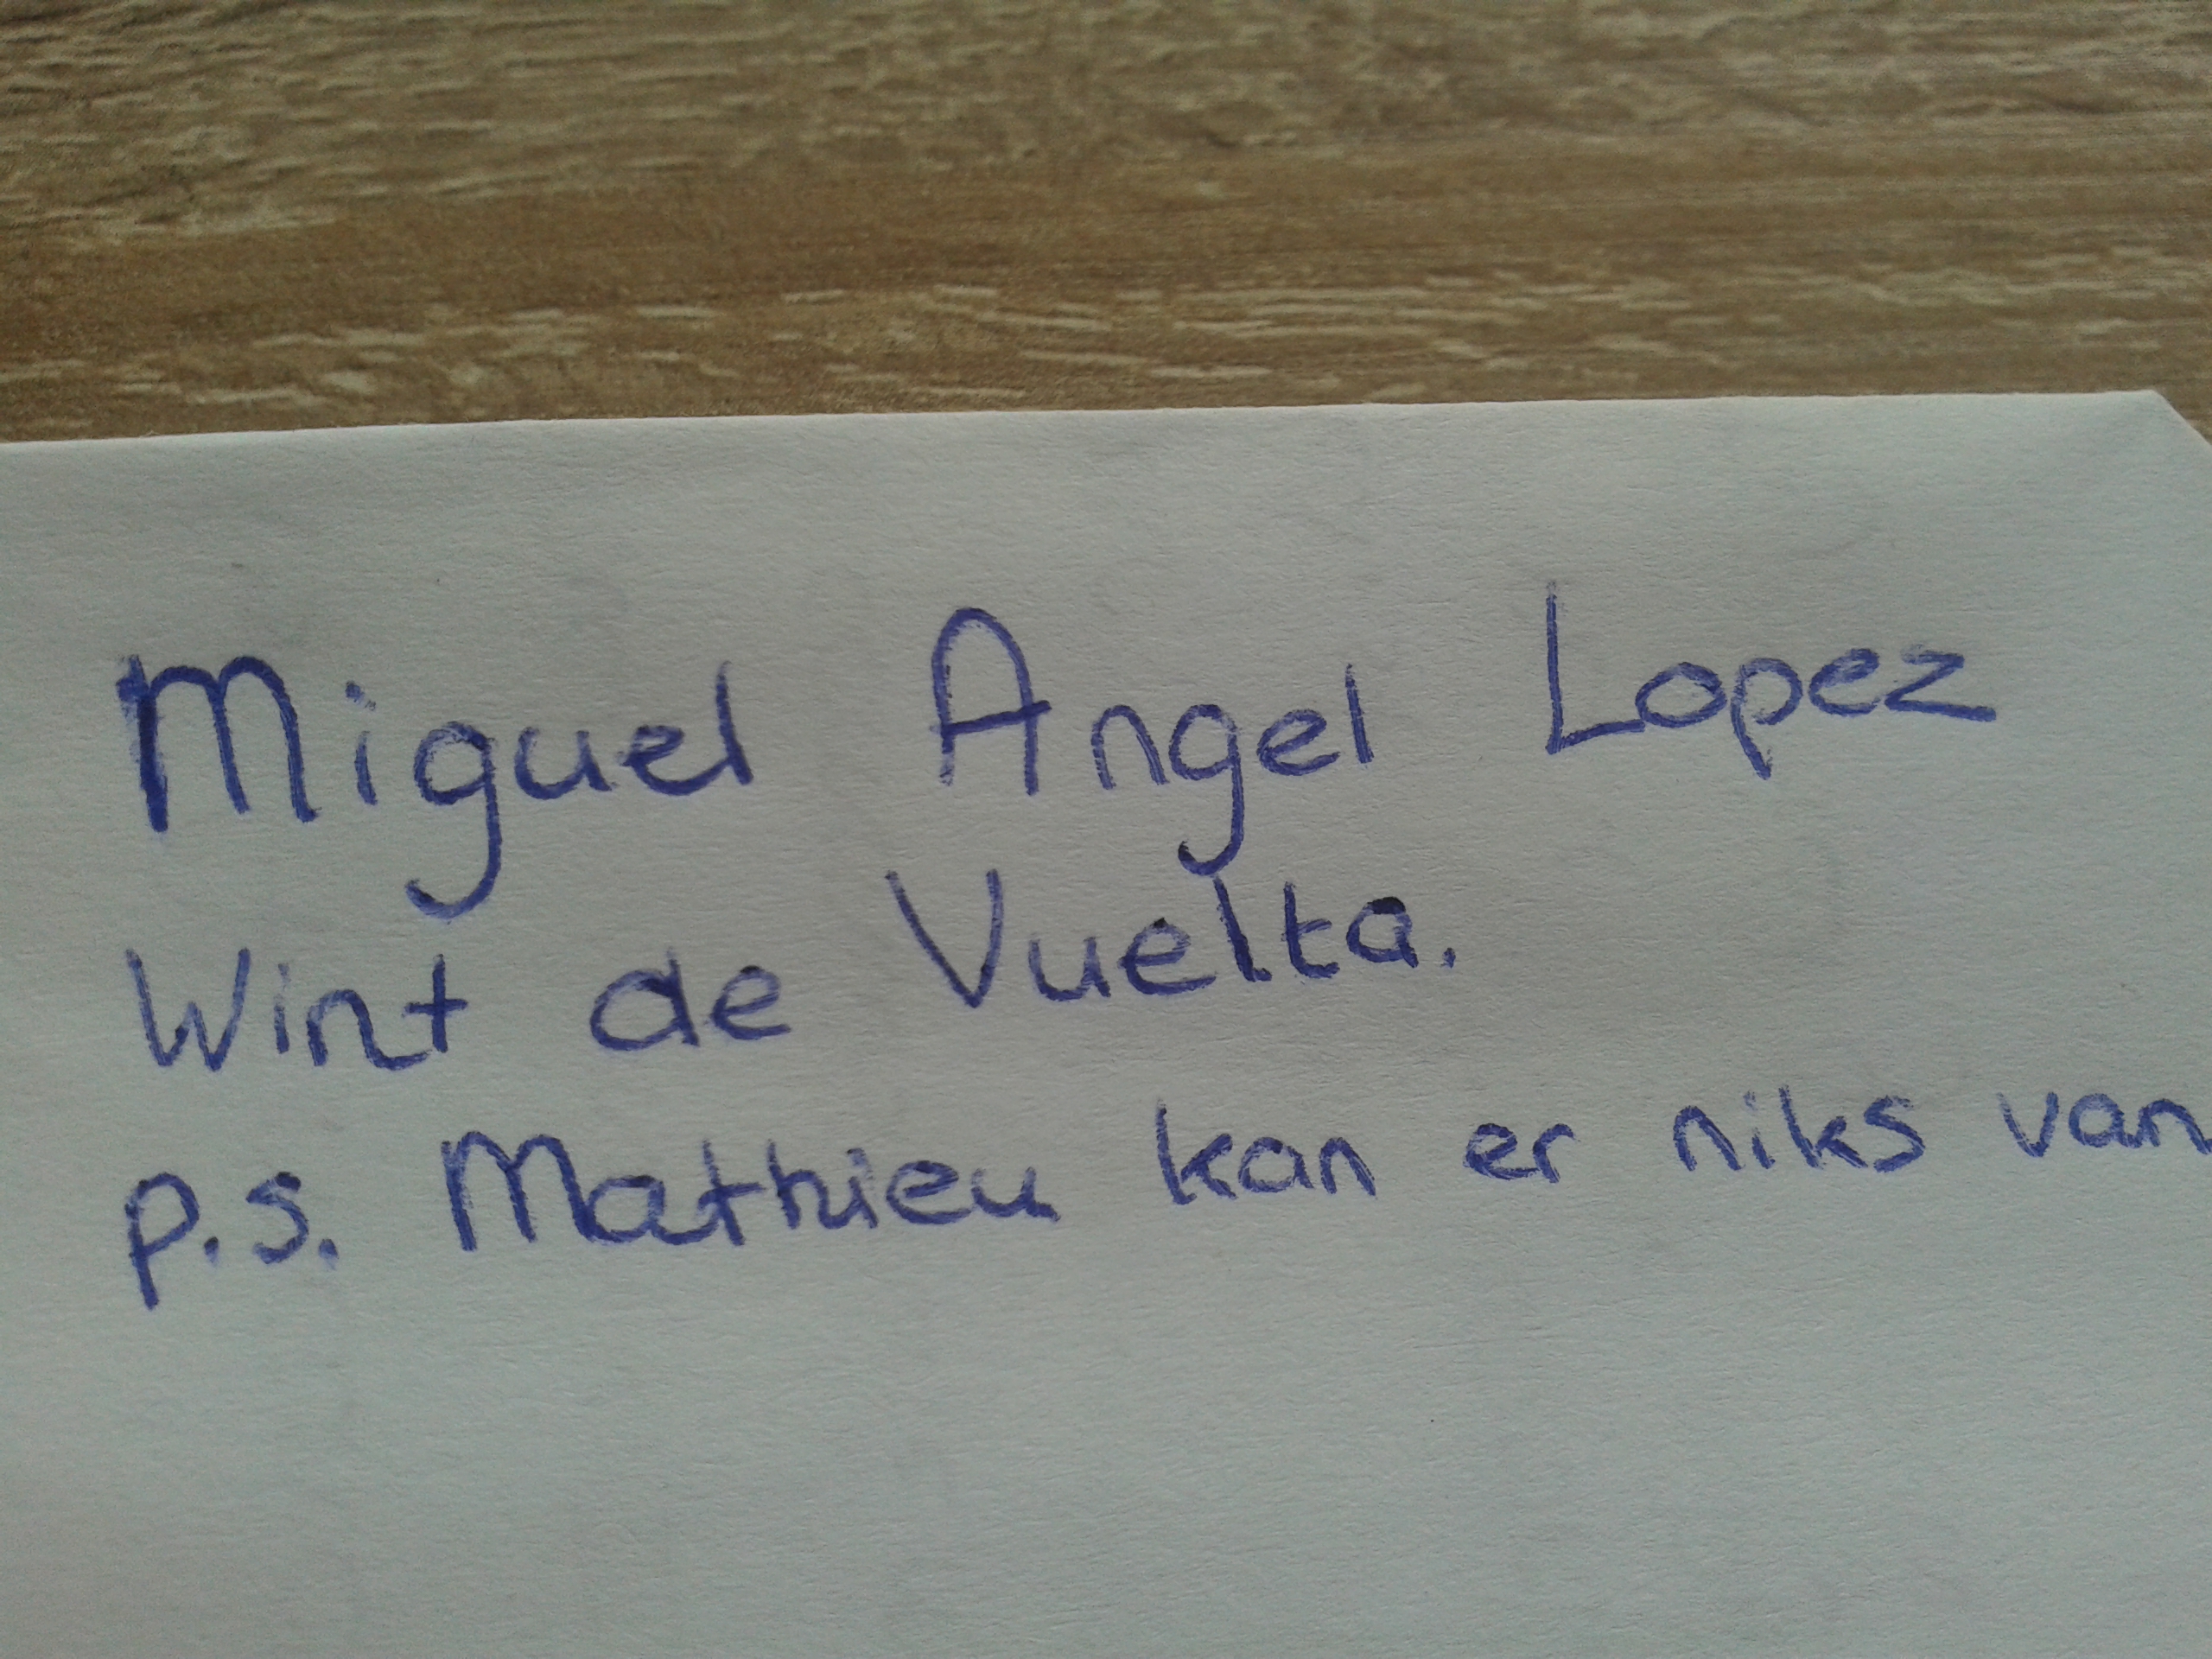 Miguel Angel Lopez
Wint de Vuelta.
p.s. Mathieu kan er niks van